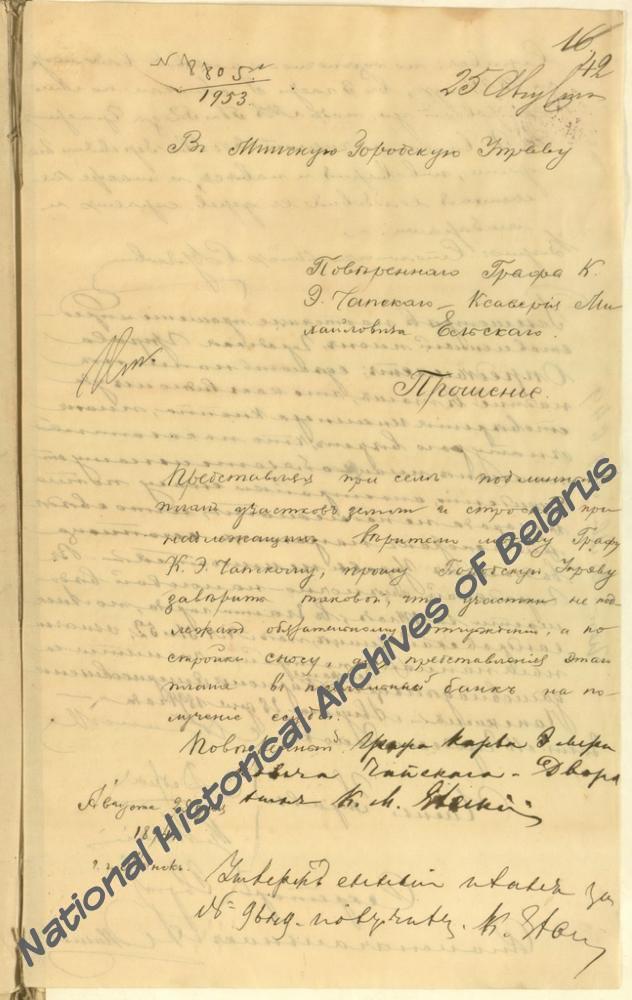 16
42
N 8805
1953.
25 Августа
Въ Минскую Городскую Управу
Повѣреннаго Графа К.
Э. Чапскаго – Ксаверія Ми
хайловича Ельскаго.
Прошеніе.
Представляя при семъ подлинный
планъ участковъ земли и строеній при
надлежащихъ вѣрителю моему Графу
К. Э. Чапскому, прошу Городскую Управу
завѣрить таковой, что участки не под
лежатъ обязательному отчужденію, а по
стройки сносу, для представленія этаго
плана въ банкъ на по
лученіе ссуды.
Повѣренный Графа Карла Эмери
ковича Чапскаго – Дворя
нинъ К. М. Ельскій
Августа
г. Минскъ.
планъ за
№ получилъ. К. Ельскій
National Historical Archives of Belarus